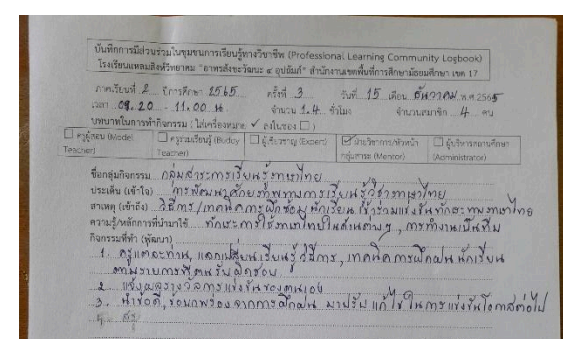 บันทึกการมีส่วนร่วมในชุมชนการเรียนรู้ทางวิชาชีพ (Professional Learning Community Logbook)
โรงเรียนแหลมสิงห์วิทยาคม "อาทรสังขะวัฒนะ ๔ อุปถัมภ์" สำนักงานเขตพื้นที่การศึกษามัธยมศึกษา เขต 17
ภาคเรียนที่ 2 ปีการศึกษา 2565 ครั้งที่ 3 วันที่ 15 เดือน ธันวาคม พ.ศ.2565
เวลา 09.20 - 11.00 น. จำนวน 1.4 ชั่วโมง จำนวนสมาชิก 4 คน
บทบาทในการทำกิจกรรม (ใส่เครื่องหมาย ✓ ลงในช่อง ☐)
☐ ครูผู้สอน (Model Teacher) ☐ ครูร่วมเรียนรู้ (Buddy Teacher) ☐ ผู้เชี่ยวชาญ (Expert) ☑ ฝ่ายวิชาการ/หัวหน้ากลุ่มสาระ (Mentor) ☐ ผู้บริหารสถานศึกษา (Administrator)
ชื่อกลุ่มกิจกรรม กลุ่มสาระการเรียนรู้ภาษาไทย
ประเด็น (เข้าใจ) การพัฒนาศักยภาพทางการเรียนรู้วิชาภาษาไทย
สาเหตุ (เข้าถึง) วิธีการ/เทคนิคการฝึกซ้อมนักเรียนเข้าร่วมแข่งขันทักษะทางภาษาไทย
ความรู้/หลักการที่นำมาใช้ ทักษะการใช้ภาษาไทยในด้านต่างๆ, การทำงานเป็นทีม
กิจกรรมที่ทำ (พัฒนา)
1. ครูแต่ละท่าน, แลกเปลี่ยนเรียนรู้วิธีการ, เทคนิคการฝึกฝนนักเรียน
ตามรายการที่ตนรับผิดชอบ
2. แจ้งผลรางวัลการแข่งขันของตนเอง
3. นำข้อดี, ข้อบกพร่องจากการฝึกฝน มาปรับแก้ไขในการแข่งขันโอกาสต่อไป
4. สรุ